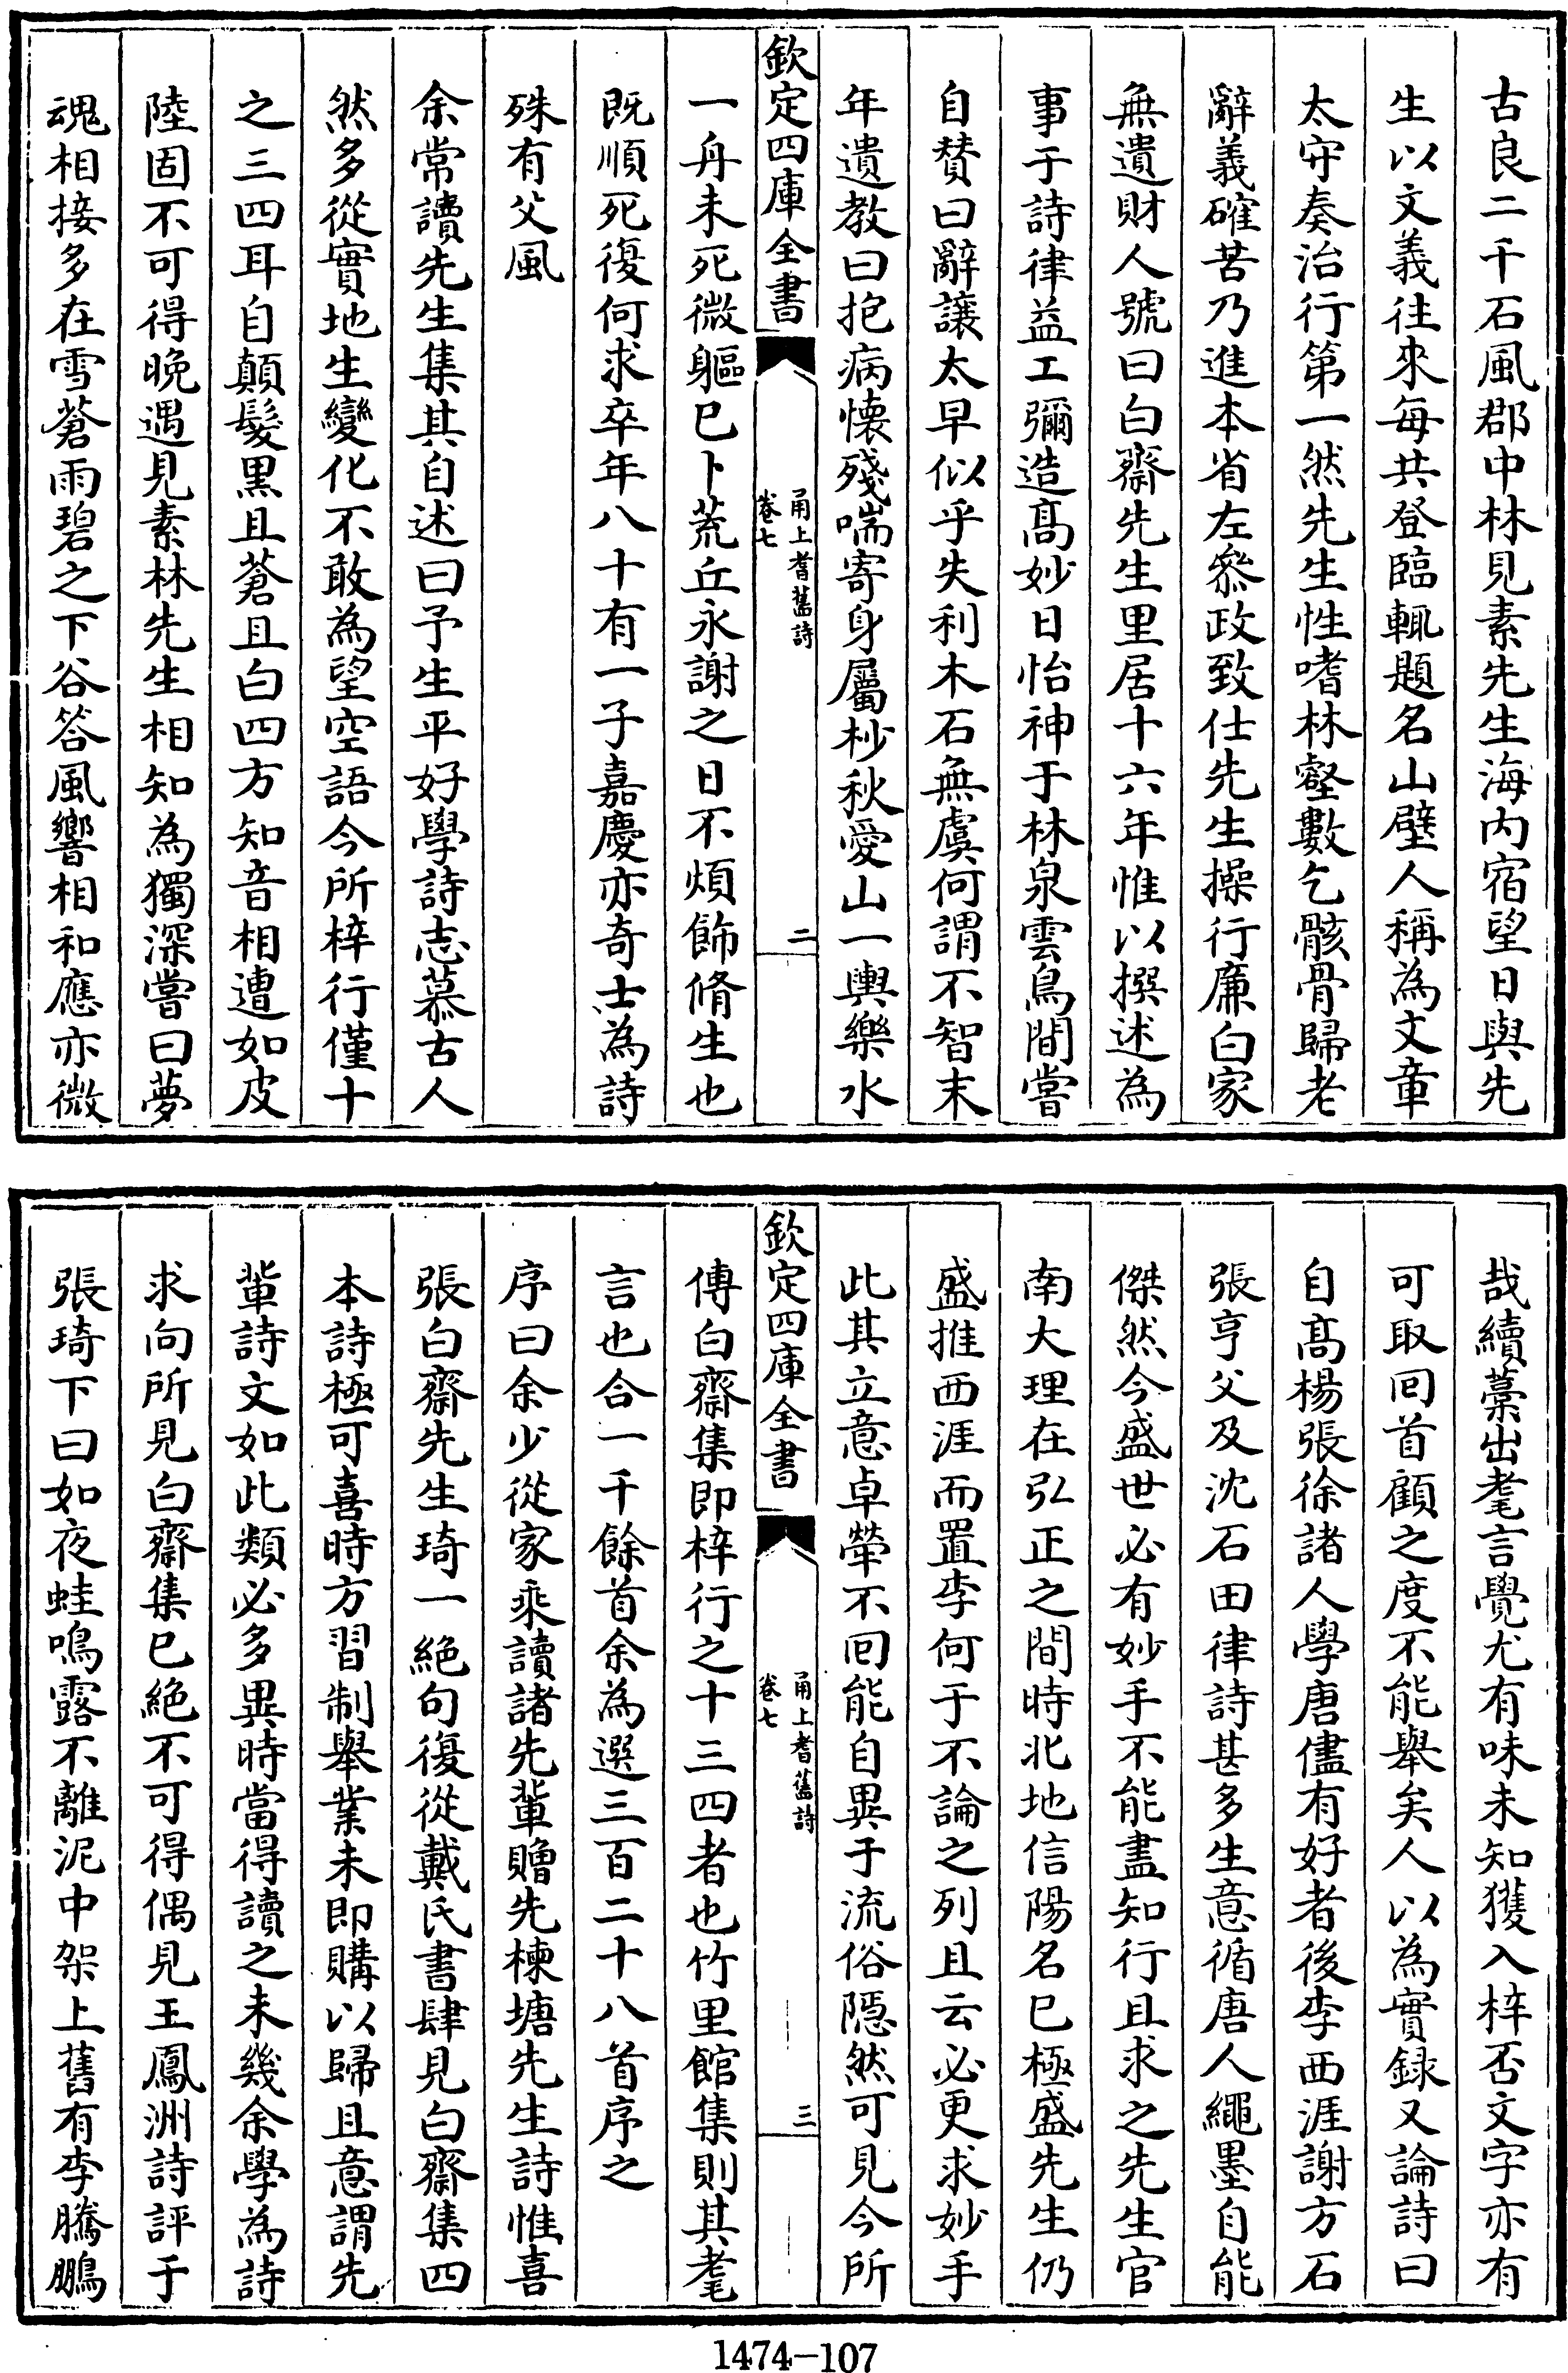 古良二千石風郡中林見素先生海内宿望日與先
生以文義往來每共登臨輒題名山壁人稱為文章
太守奏治行第一然先生性嗜林壑數乞骸骨歸老
辭義確苦乃進本省左叅政致仕先生操行廉白家
無遺財人號曰白齋先生里居十六年惟以撰述為
事于詩律益工彌造髙妙日怡神于林泉雲鳥間嘗
自賛曰辭讓太早似乎失利木石無虞何謂不智末
年遺教曰抱病懐殘喘寄身屬杪秋愛山一輿樂水
欽定四庫全書
甬上耆舊詩
卷七
二
一舟未死微軀已卜荒丘永謝之日不煩飾脩生也
既順死復何求卒年八十有一子嘉慶亦奇士為詩
殊有父風
余常讀先生集其自述曰予生平好學詩志慕古人
然多從實地生變化不敢為望空語今所梓行僅十
之三四耳自顛髮黒且蒼且白四方知音相遭如皮
陸固不可得晩遇見素林先生相知為獨深嘗曰夢
魂相接多在雪蒼雨碧之下谷答風響相和應亦微
哉續藁出耄言覺尤有味未知獲入梓否文字亦有
可取囘首顧之度不能舉矣人以為實録又論詩曰
自髙楊張徐諸人學唐儘有好者後李西涯謝方石
張亨父及沈石田律詩甚多生意循唐人繩墨自能
傑然今盛世必有妙手不能盡知行且求之先生官
南大理在弘正之間時北地信陽名已極盛先生仍
盛推西涯而置李何于不論之列且云必更求妙手
此其立意卓犖不囘能自異于流俗隱然可見今所
欽定四庫全書
甬上耆舊詩
卷七
三
傳白齋集即梓行之十三四者也竹里館集則其耄
言也合一千餘首余為選三百二十八首序之
序曰余少從家乘讀諸先輩贈先楝塘先生詩惟喜
張白齋先生琦一絶句復從戴氏書肆見白齋集四
本詩極可喜時方習制舉業未即購以歸且意謂先
輩詩文如此類必多異時當得讀之未幾余學為詩
求向所見白齋集已絶不可得偶見王鳳洲詩評于
張琦下曰如夜蛙鳴露不離泥中架上舊有李騰鵬
1474-107